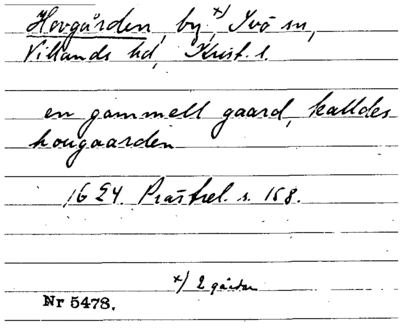 Hovgården, by, x) Ivö sn,
Villands hd, Krist. l.
en gammell gaard, kalldes
hougaarden
1624. Prästrel. s. 158.
x) 2 gårdar
Nr 5478.